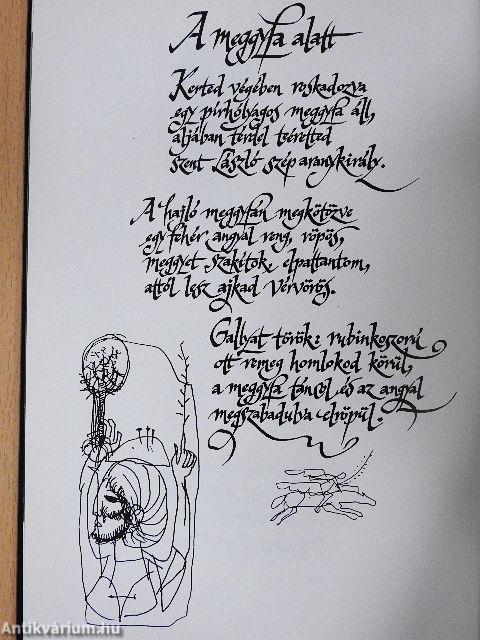 A meggyfa alatt
Kerted végében roskadozva
egy pírhólyagos meggyfa áll,
aljában térdel teéretted
Szent László szép aranykirály.
A hajló meggyfán megkötözve
egy fehér angyal reng, röpös,
meggyet szakítok, elpattantom,
attól lesz ajkad vérvörös.
Gallyat török: rubinkoszorú
ott remeg homlokod körül,
a meggyfa táncol és az angyal
megszabadulva elröpül.
Antikvárium.hu